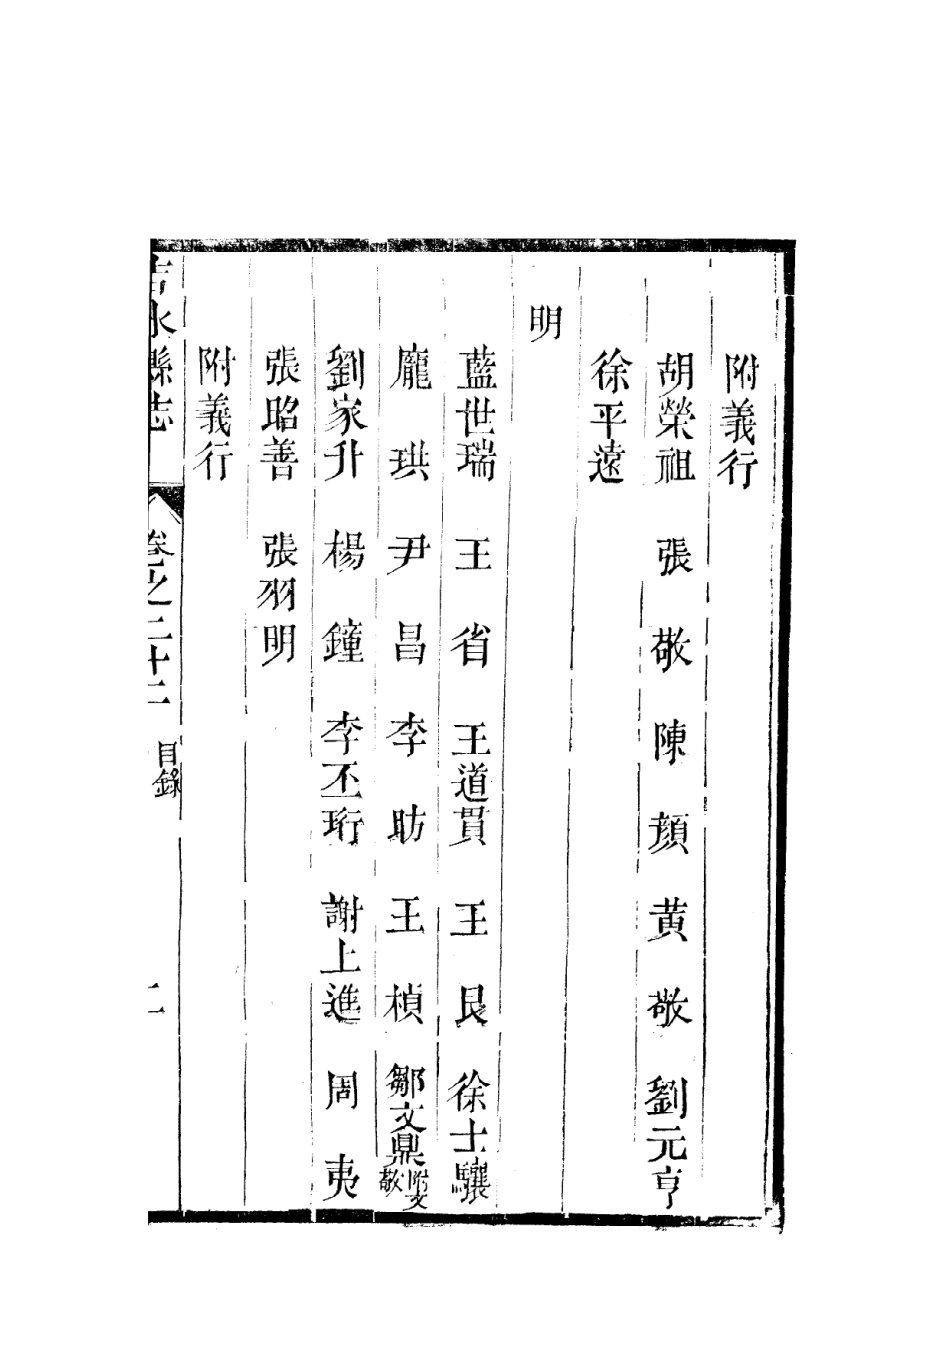 附義行
胡榮祖 張敬 陳頠 黄敬 劉元亨
徐平遠
明
藍世瑞 王省 王道貫 王艮 徐士驤
龐珙 尹昌 李昉 王楨 鄒文鼎 附文敬
劉家升 楊鐘 李丕珩 謝上進 周夷
張昭善 張羽明
附義行
吉水縣志 卷之二十二 目錄 二